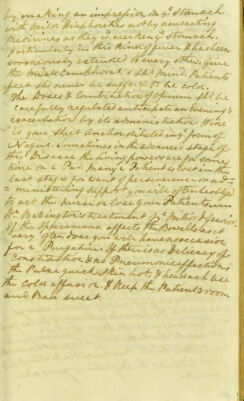 by making an impression on ye Stomach
not by nauseating
medicines as they weaken ye Stomach.
particularly in this kind of fever & has been
erroneously extended to every other. Give
the Mist: Camphorat: & Spt. Patients
feet shd never be exposed to the cold.
The Dose & Continuation of Opium shd be
carefully regulated anticipate an Evening's
exacerbation by its administration. Wine
is your sheet anchor diluted in ye form of
Negus. Sometimes in the advanced stage of
this Disease the living powers are for some
time on a Par. many a Patient is lost in the
last stage for want of perseverance in ad=
=ministering support. you will often be oblig'd
to act the nurse or lose your Patient
Dr. Babington's treatment of
If the Ipecacuana affects the Bowells as it
very often does you will have no occasion
for a Purgative. If there is no delicacy of
Constitution & no Pneumonic affections
the Pulse quick, Skin hot, & headach use
the cold affusion. & Keep the Patient's room
and Bed sweet.